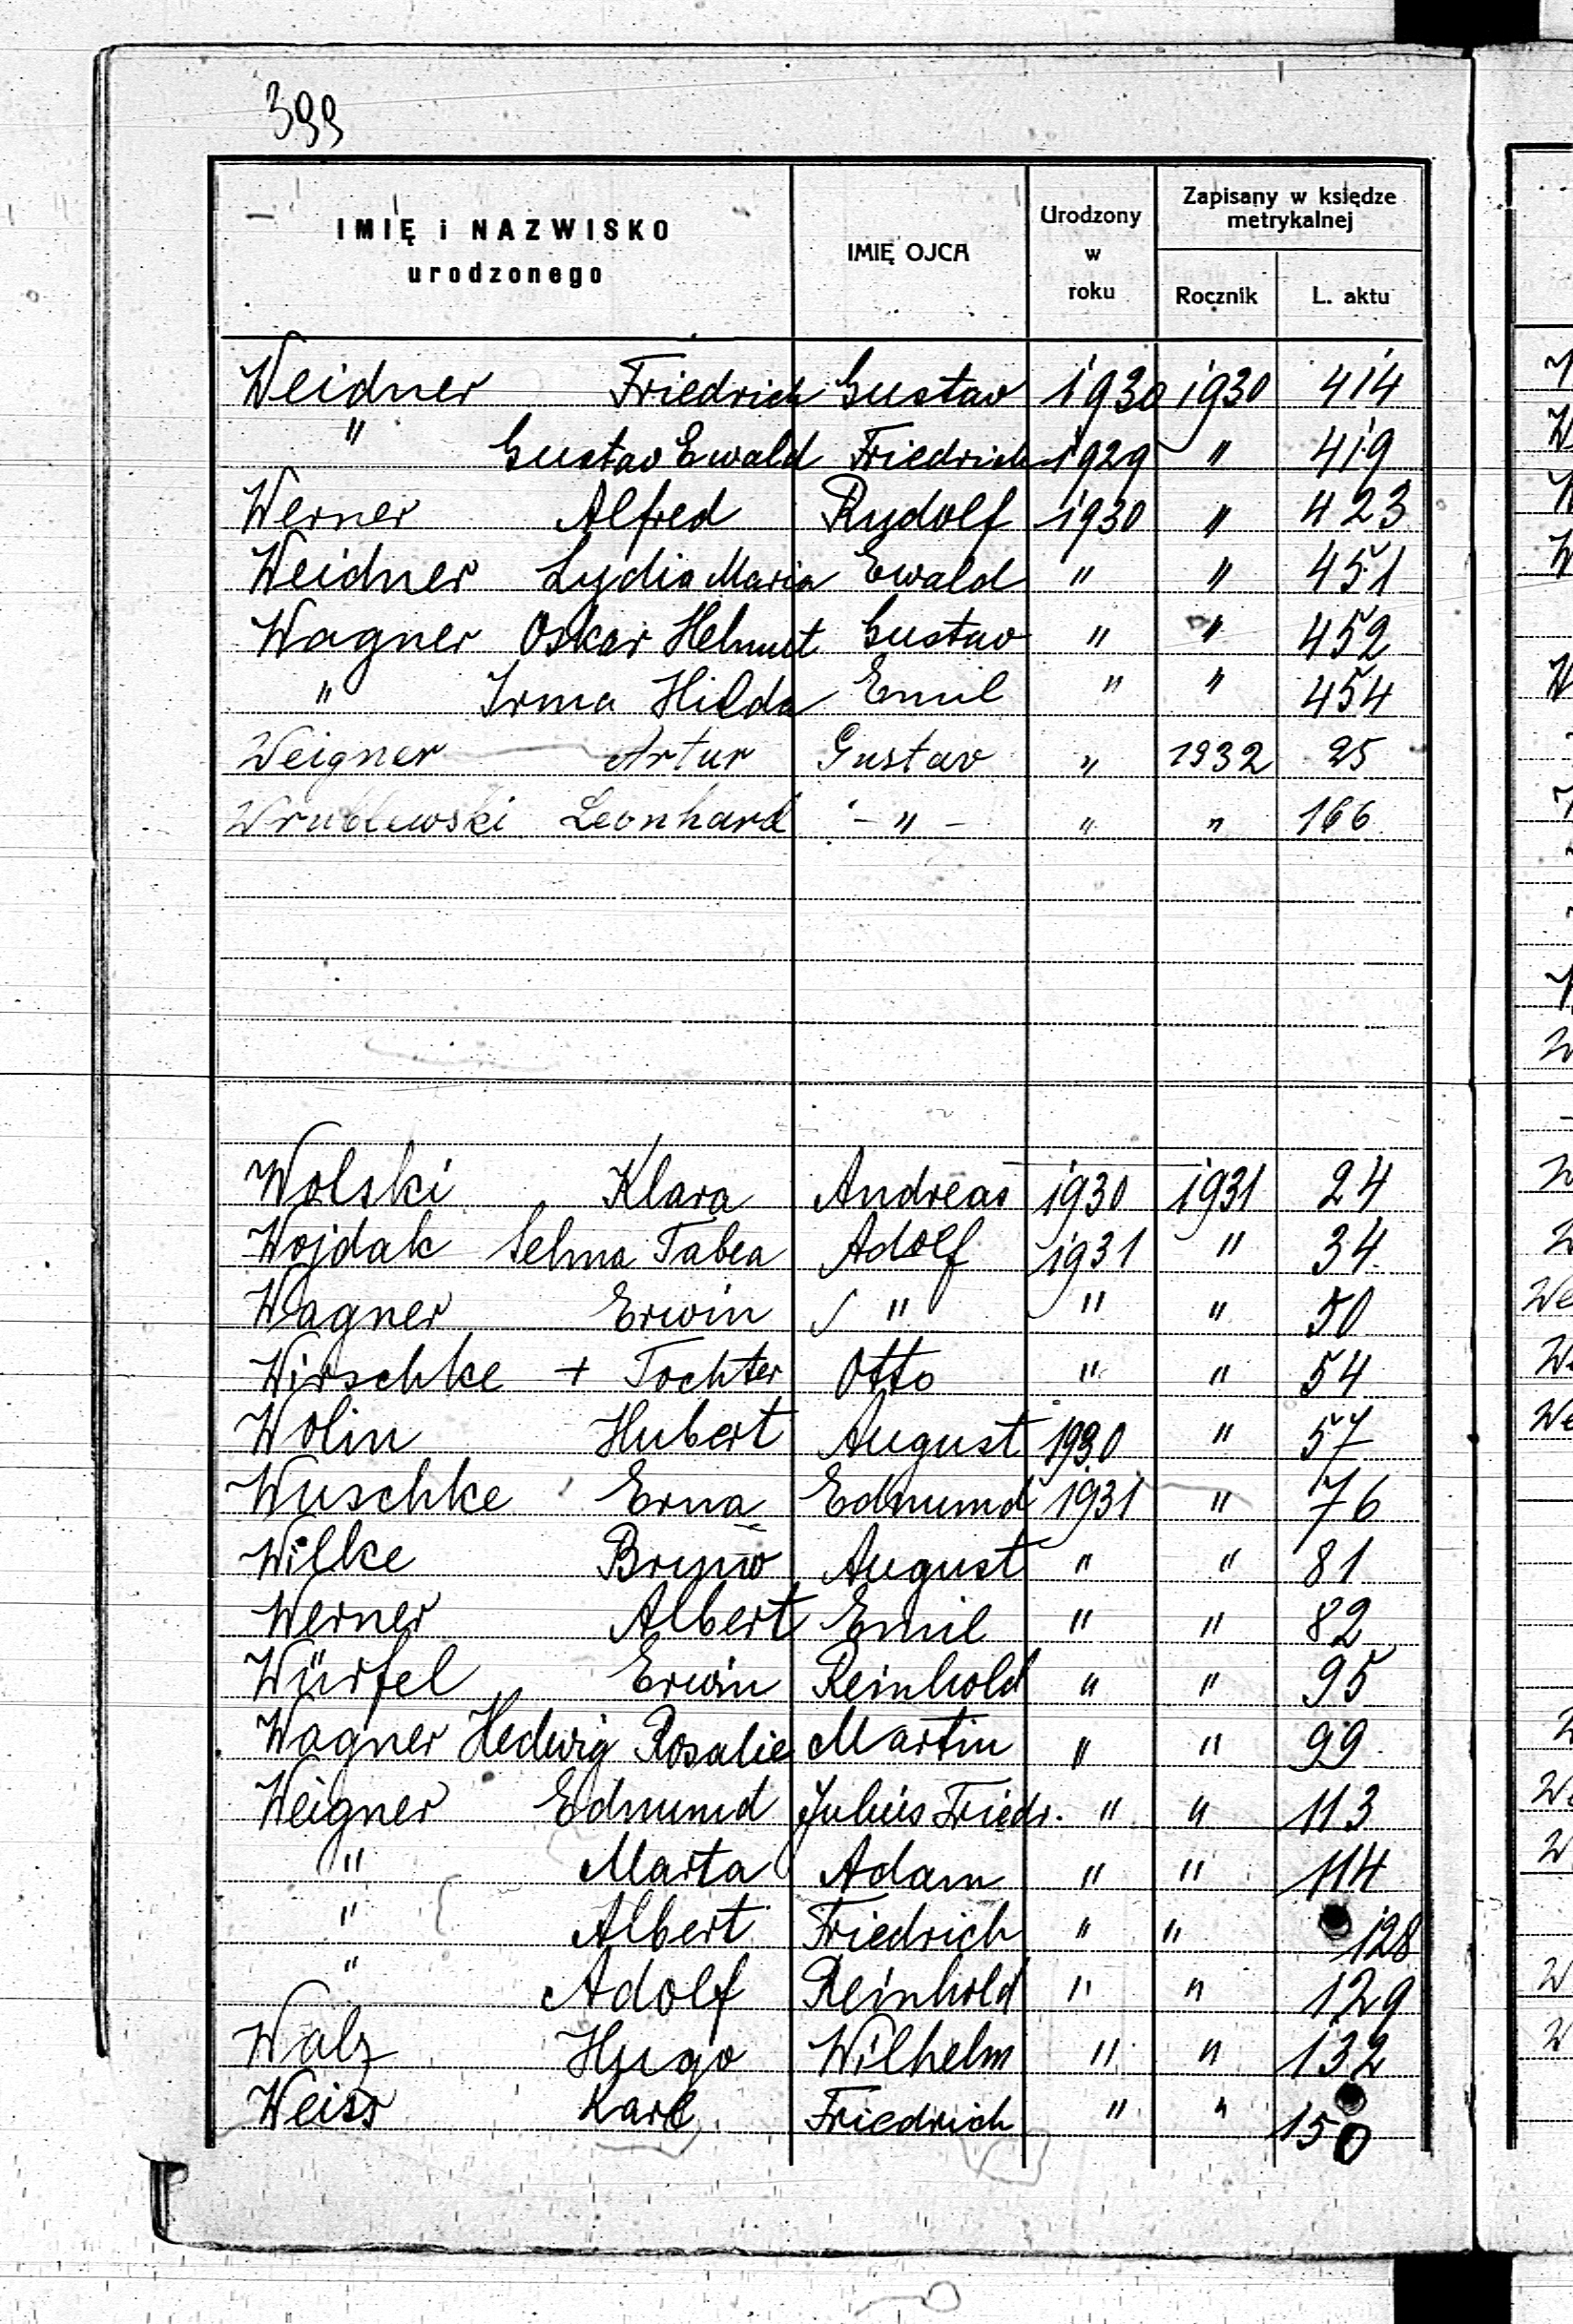 399
IMIĘ i NAZWISKO urodzonego IMIĘ OJCA Urodzony w roku Zapisany w księdze metrykalnej
Rocznik L. aktu
Weidner Friedrich Gustav 1930 1930 414
" Gustav Ewald Friedrich 1929 " 419
Werner Alfred Rudolf 1930 " 423
Weidner Lydia Maria Ewald " " 451
Wagner Oskar Helmut Gustav " " 452
" Irma Hilda Emil " " 454
Weigner Artur Gustav " 1932 25
Wrublewski Leonhard - " - " " 166
Wolski Klara Andreas 1930 1931 24
Wojdak Selma Tabea Adolf 1931 " 34
Wagner Erwin " " " 50
Wirschke + Tochter Otto " " 54
Wolin Hubert August 1930 " 57
Wuschke Erna Edmund 1931 " 76
Wilke Bruno August " " 81
Werner Albert Emil " " 82
Würfel Erwin Reinhold " " 95
Wagner Hedwig Rosalie Martin " " 99
Weigner Edmund Julius Friedr. " " 113
" Marta Adam " " 114
" Albert Friedrich " " 128
" Adolf Reinhold " " 129
Walz Hugo Wilhelm " " 132
Weiss Karl Friedrich " " 150